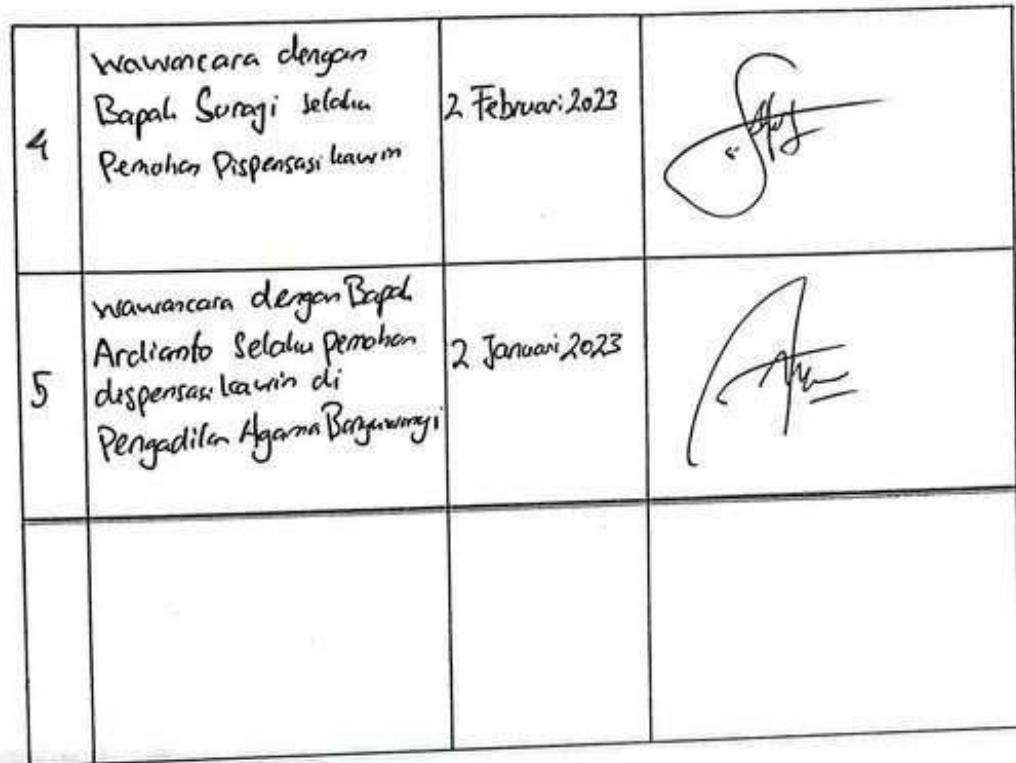 4
Wawancara dengan
Bapak Suragi selaku
Pemohon Dispensasi kawin
2 Februari 2023
5
wawancara dengan Bapak
Ardianto Selaku pemohon
dispensasi kawin di
Pengadilan Agama Banyuwangi
2 Januari 2023